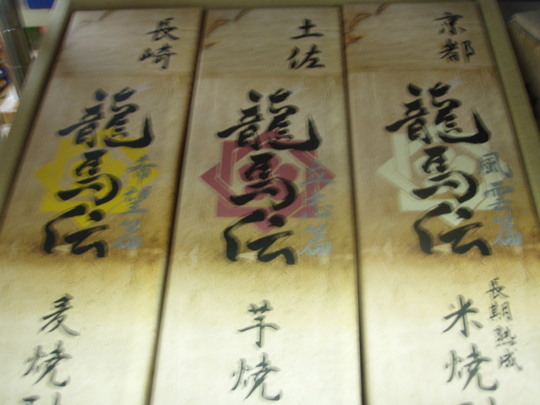 長崎
龍馬伝
希望篇
麦焼
土佐
龍馬伝
立志篇
芋焼
京都
龍馬伝
風雲篇
長期熟成
米焼